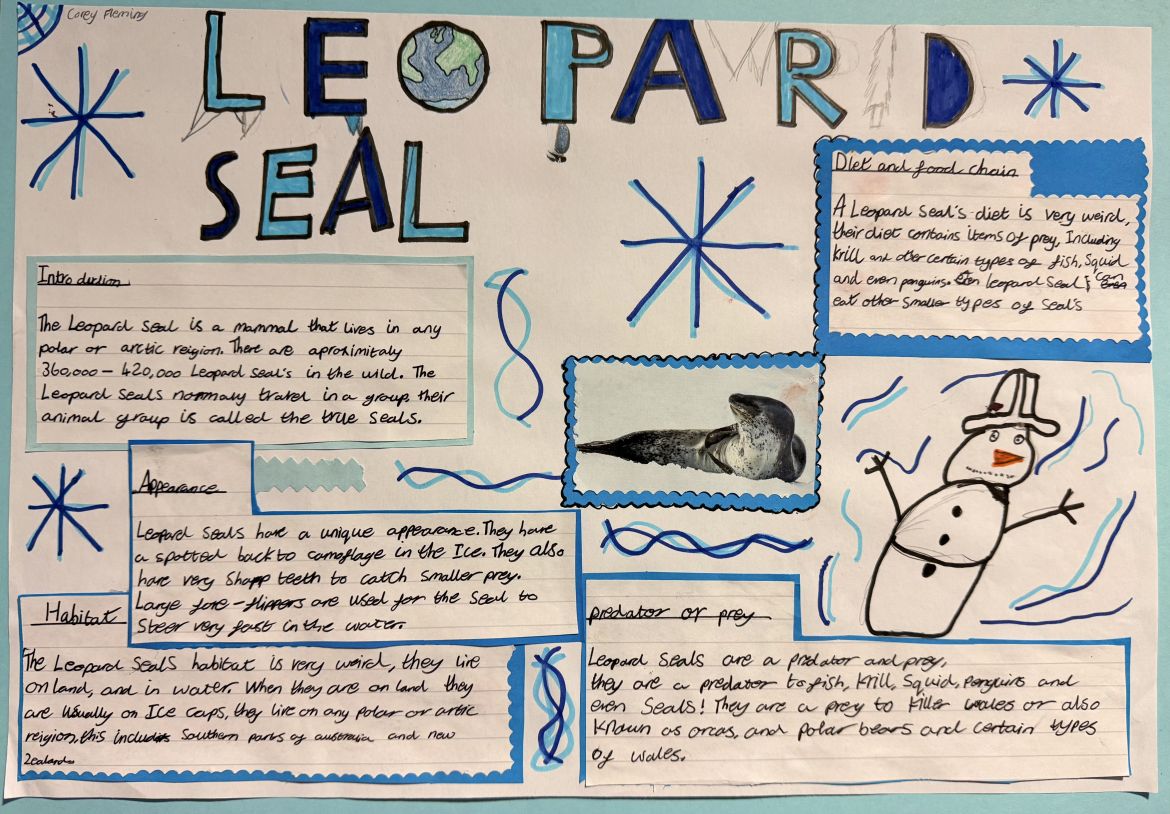 Corey Fleming
LEOPARD
SEAL
Introduction
The Leopard Seal is a mammal that lives in any
polar or arctic reigion. There are aproximitaly
360,000 – 420,000 Leopard seal's in the wild. The
Leopard Seals normaly travel in a group, their
animal group is called the true seals.
Diet and food chain
A Leopard Seal's diet is very weird,
their diet contains items of prey, Including
Krill, and other certain types of fish, Squid
and even penguins. leopard seal's can
eat other smaller types of seal's
Appearance
Leopard Seals have a unique appearance. They have
a spotted back to camoflage in the Ice. They also
have very sharp teeth to catch smaller prey.
Large fore-flippers are used for the seal to
Steer very fast in the water.
Habitat
The Leopard Seals habitat is very weird, they live
on land, and in water. When they are on land they
are Usually on Ice caps, they live on any polar or artic
reigion, this includes Southern parts of australia and new
Zealand.
predator or prey
Leopard Seals are a predator and prey,
they are a predator to fish, Krill, Squid, penguins and
even Seals! They are a prey to Killer wales or also
Known as orcas, and polar bears and certain types
of wales.